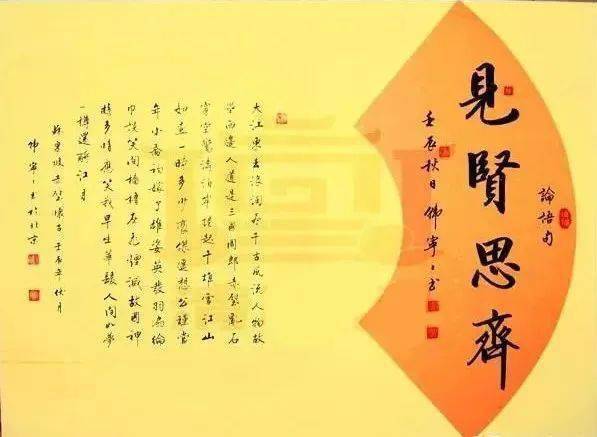 見賢思齊
論語句
壬辰秋日佛寧〻书
大江東去浪淘尽千古风流人物故
壘西邊人道是三國周郎赤壁亂石
穿空驚濤拍岸捲起千堆雪江山
如畫一時多少豪傑遥想公瑾當
年小喬初嫁了雄姿英發羽扇綸
巾談笑间檣櫓灰飞煙滅故國神
遊多情應笑我早生華髮人间如夢
一樽還酹江月
蘇東坡赤壁懷古壬辰年秋月
佛寧〻书於北京